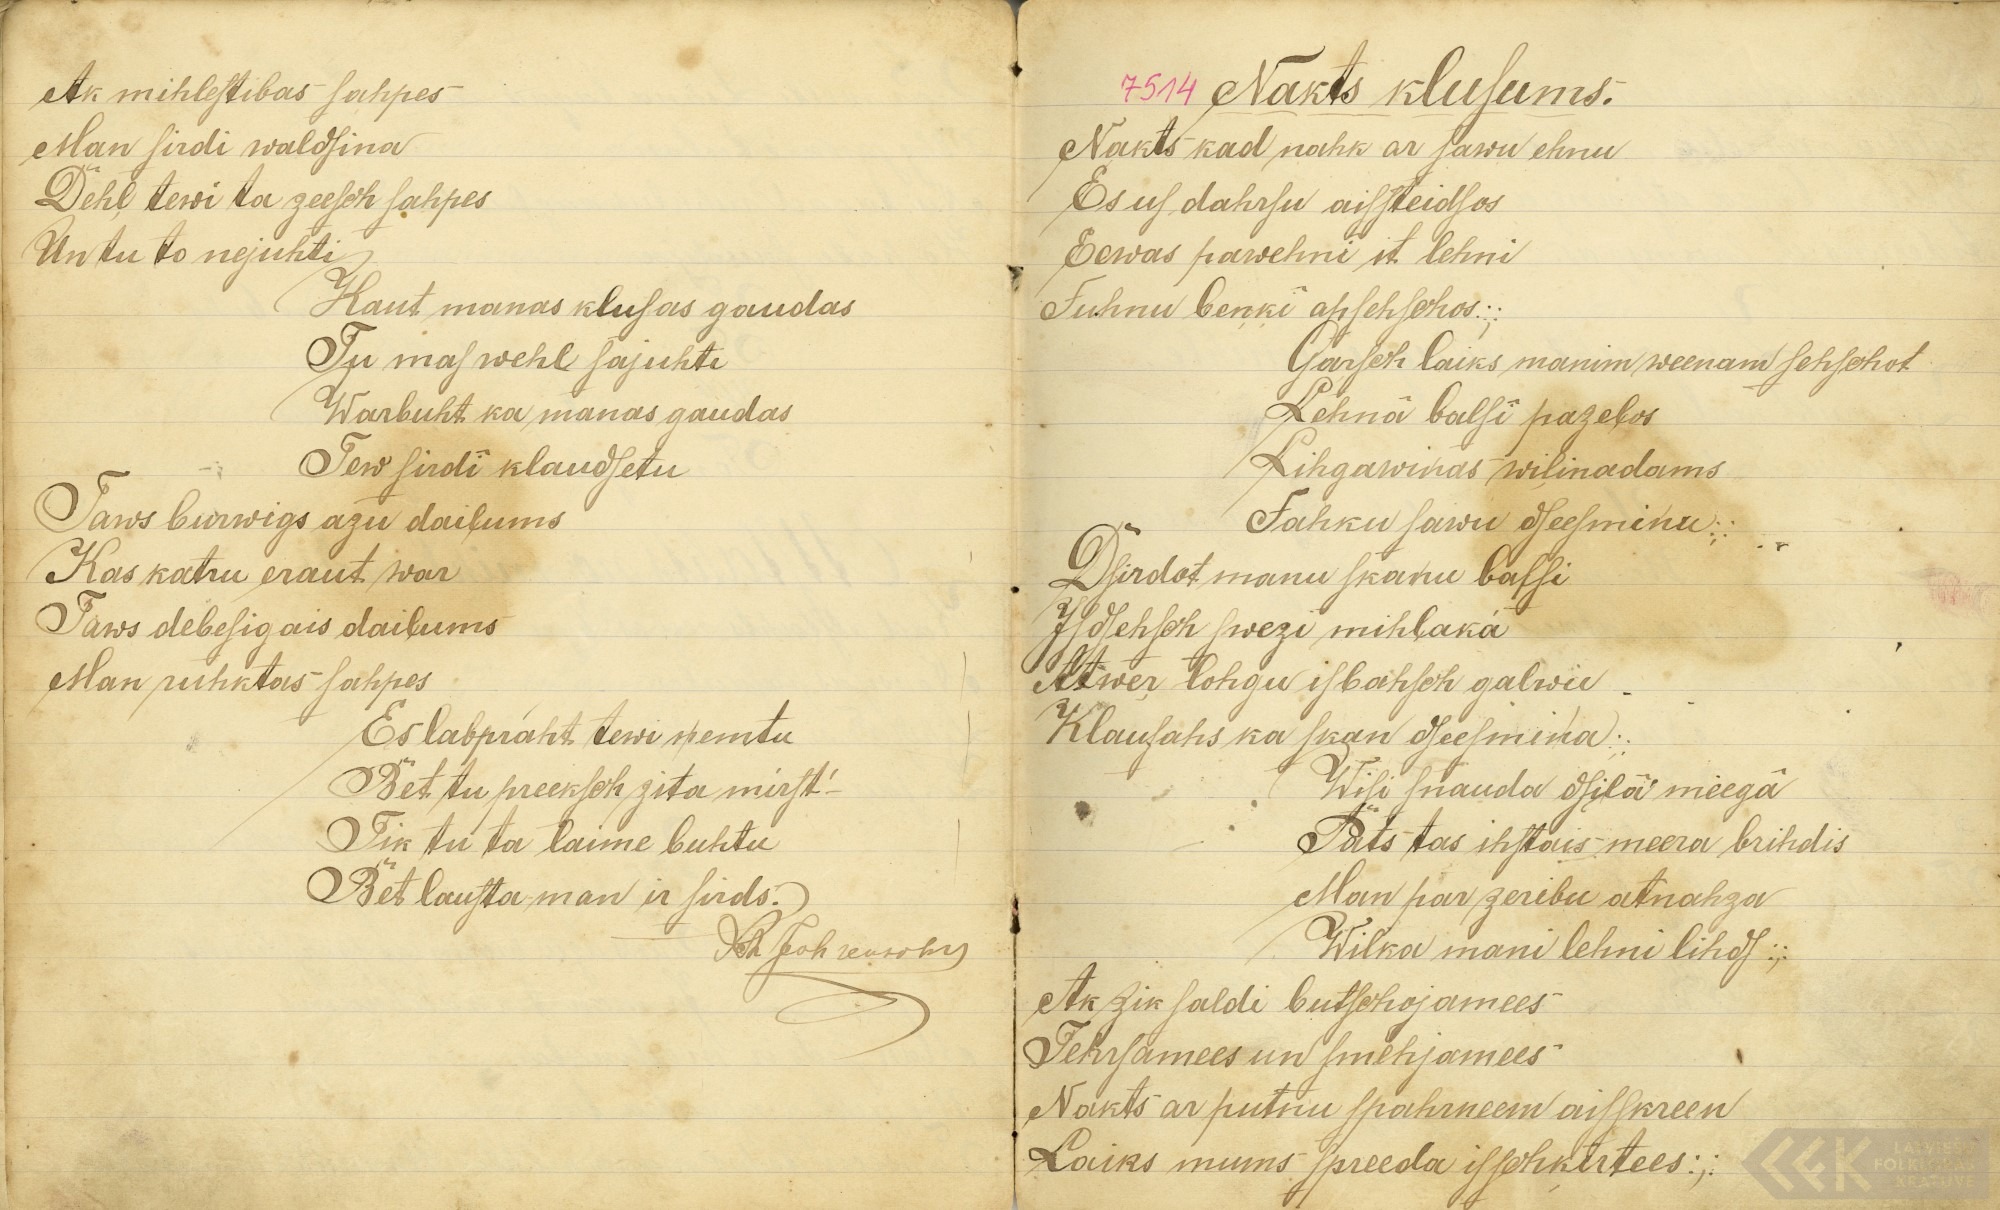 Ak mihlestibas sahpes
Man sirdi waldsina
Dehļ tewi ta zeesch sahpes
Un tu to nejuhti
Kaut manas klusas gaudas
Tu mas wehl sajuhti
Warbuht ka manas gaudas
Tew sirdī klaudsetu
Taws burwigs azu daiļums
Kas katru eraut war
Taws debesigais daiļums
Man ruhktas sahpes
Es labpraht tewi ņemtu
Bet tu preeksch zita mirst!
Tik tu ta laime buhtu
Bet lausta man ir sirds.
7514 Nakts klusums.
Nakts kad nahk ar sawu ehnu
Es us dahrsu aissteidsos
Eewas pawehni it lehni
Suhnu benķī apsehschos:;:
Garsch laiks manim weenam sehschot
Lehnā balsī pazeļos
Lihgawiņas wiļinadams
Sahku sawu dseesmiņu:;:
Dsirdot manu skaņu balsi
Isdsehsch swezi mihļakā
Atweŗ lohgu isbahsch galwu
Klausahs ka skan dseesmiņa:;:
Wisi snauda dsiļā meegā
Pats tas ihstais meera brihdis
Man par zeribu atnahza
Wilka mani lehni lihds:;:
Ak zik saldi butschojamees
Tehrsamees un smehjamees
Nakts ar putnu spahrneem aisskreen
Laiks mums spreeda isschķirtees:;:
LATVIEŠU
FOLKLORAS
KRĀTUVE